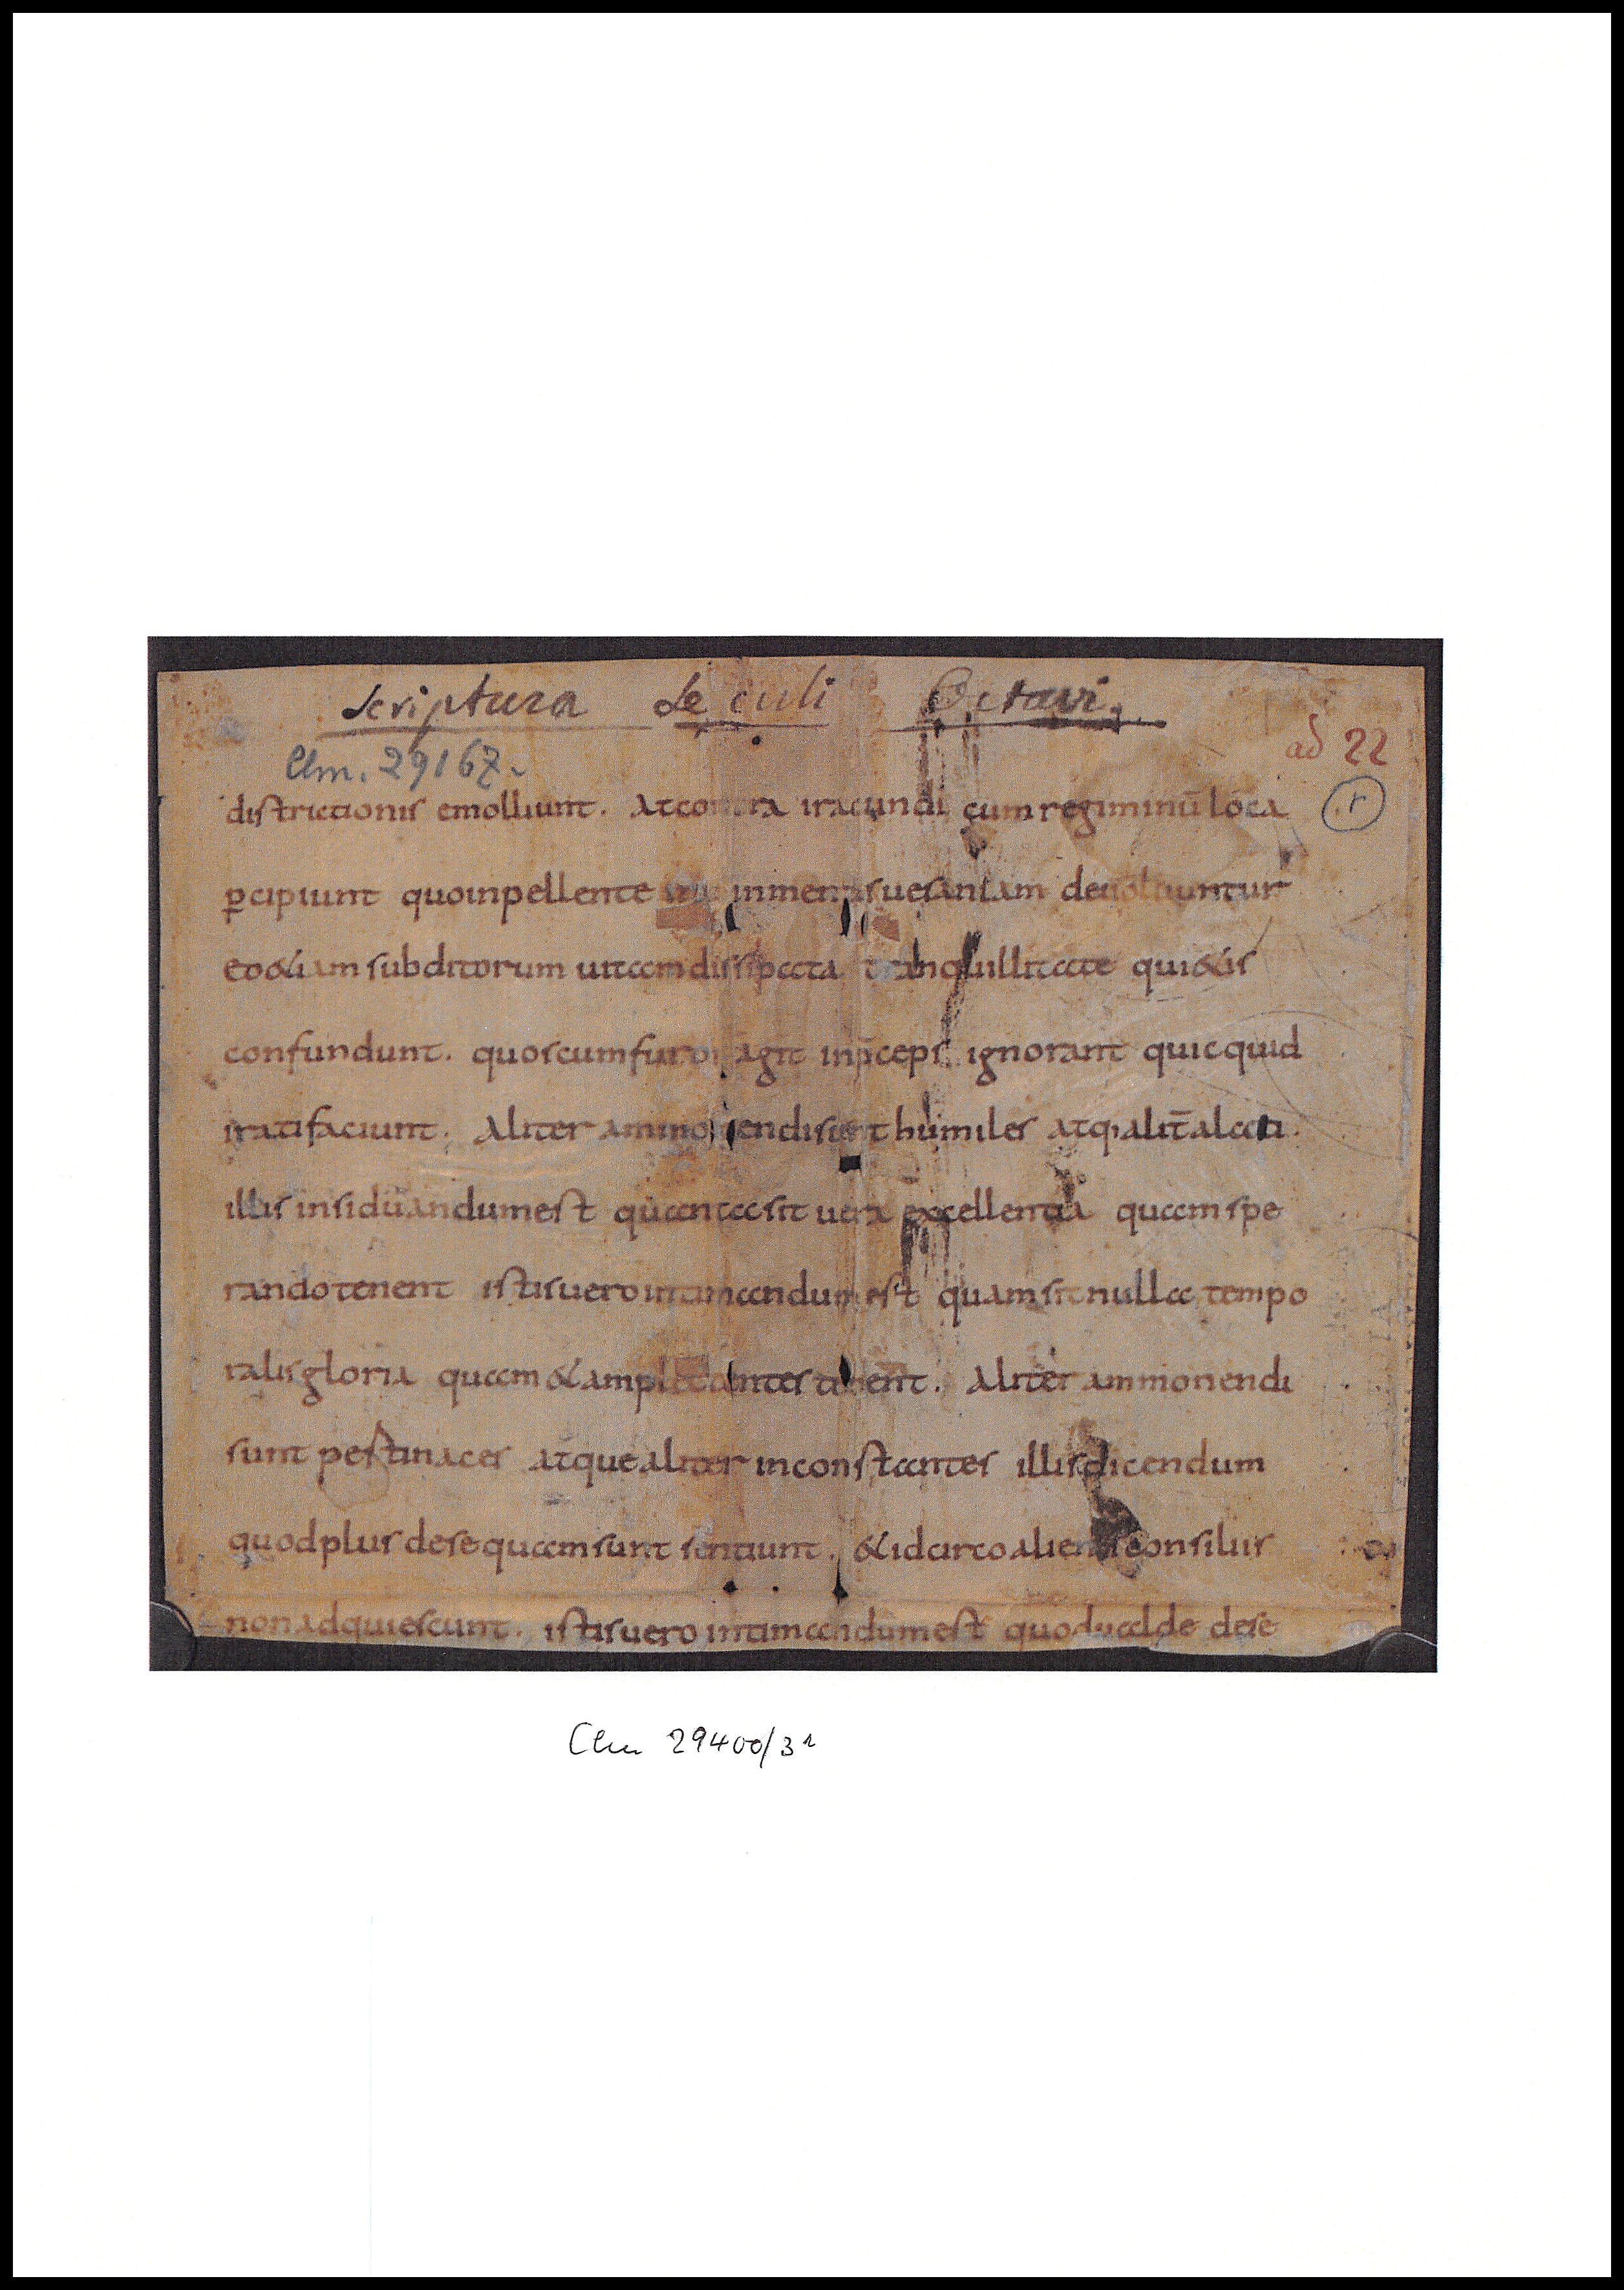 Scriptura Seculi Octavi.
Clm. 29167.
ad 22
r
districtionis emolliunt. At contra iracundi cum regiminū loca
ꝑcipiunt quo inpellente ira in mentis uesaniam deuoluuntur
eo &iam subditorum uitam dissipata tranquillitate qui&is
confundunt. quos cum furor agit in p̄ceps ignorant quicquid
irati faciunt. Aliter ammonendi sunt humiles atq; alit̄ alati.
illis insiduandum est quanta sit uera excellentia quam spe
rando tenent istis uero intimandum est quam sit nulla tempo
ralis gloria quam & amplectentes tenent. Aliter ammonendi
sunt pertinaces atque aliter inconstantes illis dicendum
quod plus de se quam sunt sentiunt. & idcirco alienis consiliis
non adquiescunt. istis uero intimandum est quod ualde de se
Clm 29400/3 1